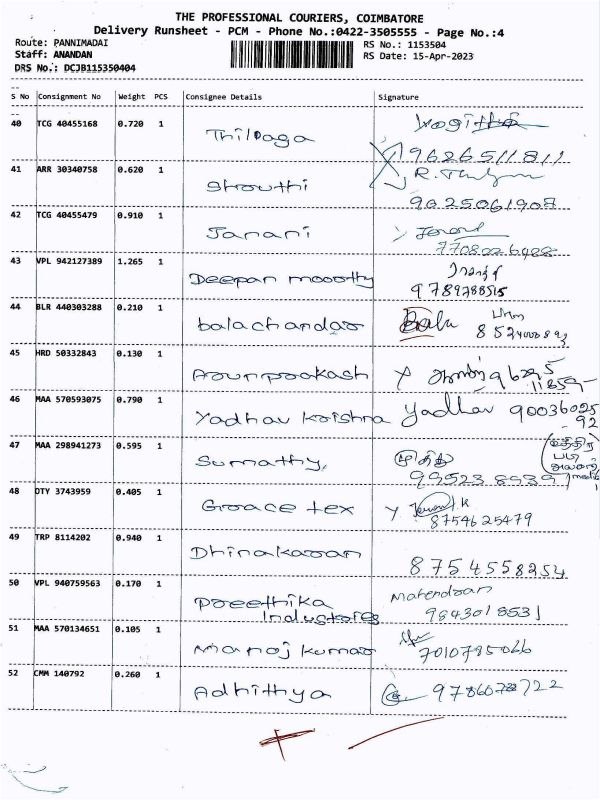 THE PROFESSIONAL COURIERS, COIMBATORE
Delivery Runsheet - PCM - Phone No.:0422-3505555 - Page No.:4
Route: PANNIMADAI RS No.: 1153504
Staff: ANANDAN RS Date: 15-Apr-2023
DRS No.: DCJB115350404
S No Consignment No Weight PCS Consignee Details Signature
40 TCG 40455168 0.720 1 Thilaga
9626511811
41 ARR 30340758 0.620 1 Shruthi
9025061908
42 TCG 40455479 0.910 1 Janani
43 VPL 942127389 1.265 1 Deepan moorthy
9789788515
44 BLR 440303288 0.210 1 balachandar Bala
45 HRD 50332843 0.130 1 Arunprakash
96295
11859
46 MAA 570593075 0.790 1 Yadhav krishna Yadhav 90036025
-92
47 MAA 298941273 0.595 1 Sumathy,
48 OTY 3743959 0.405 1 Grace tex
8754625479
49 TRP 8114202 0.940 1 Dhinakaran 8754558254
50 VPL 940759563 0.170 1 Preethika Mahendran
Industries 9843018531
51 MAA 570134651 0.105 1 manoj kumar 7010785066
52 CMM 140792 0.260 1 Adhithya 9786078722